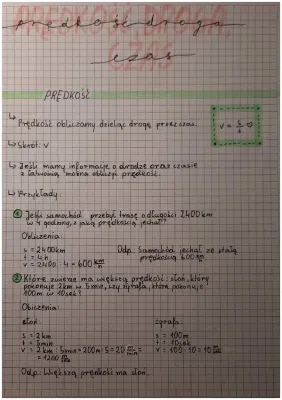 PRĘDKOŚĆ, DROGA,
CZAS
prędkość droga
czas
PRĘDKOŚĆ
↳ Prędkość obliczamy dzieląc drogę przez czas.
v = s/t
↳ Skrót: V
↳ Jeśli mamy informacje o drodze oraz czasie
z łatwością można obliczyć prędkość.
↳ Przykłady:
1 Jeśli samochód przebył trasę o długości 2400 km
w 4 godziny, z jaką prędkością jechał?
Obliczenia:
s = 2400 km
t = 4h
v = 2400 : 4 = 600 km/h
Odp.: Samochód jechał ze stałą
prędkością 600 km/h
2 Które zwierzę ma większą prędkość: słoń, który
pokonuje 2km w 5min, czy żyrafa, która pokonuje
100m w 10sek?
Obliczenia:
słoń:
s = 2km
t = 5min
v = 2km : 5min = 200m : 5 = 20 m/min =
= 1200 m/
żyrafa:
s = 100m
t = 10sek
v = 100 : 10 = 10 m/
Odp.: Większą prędkość ma słoń.